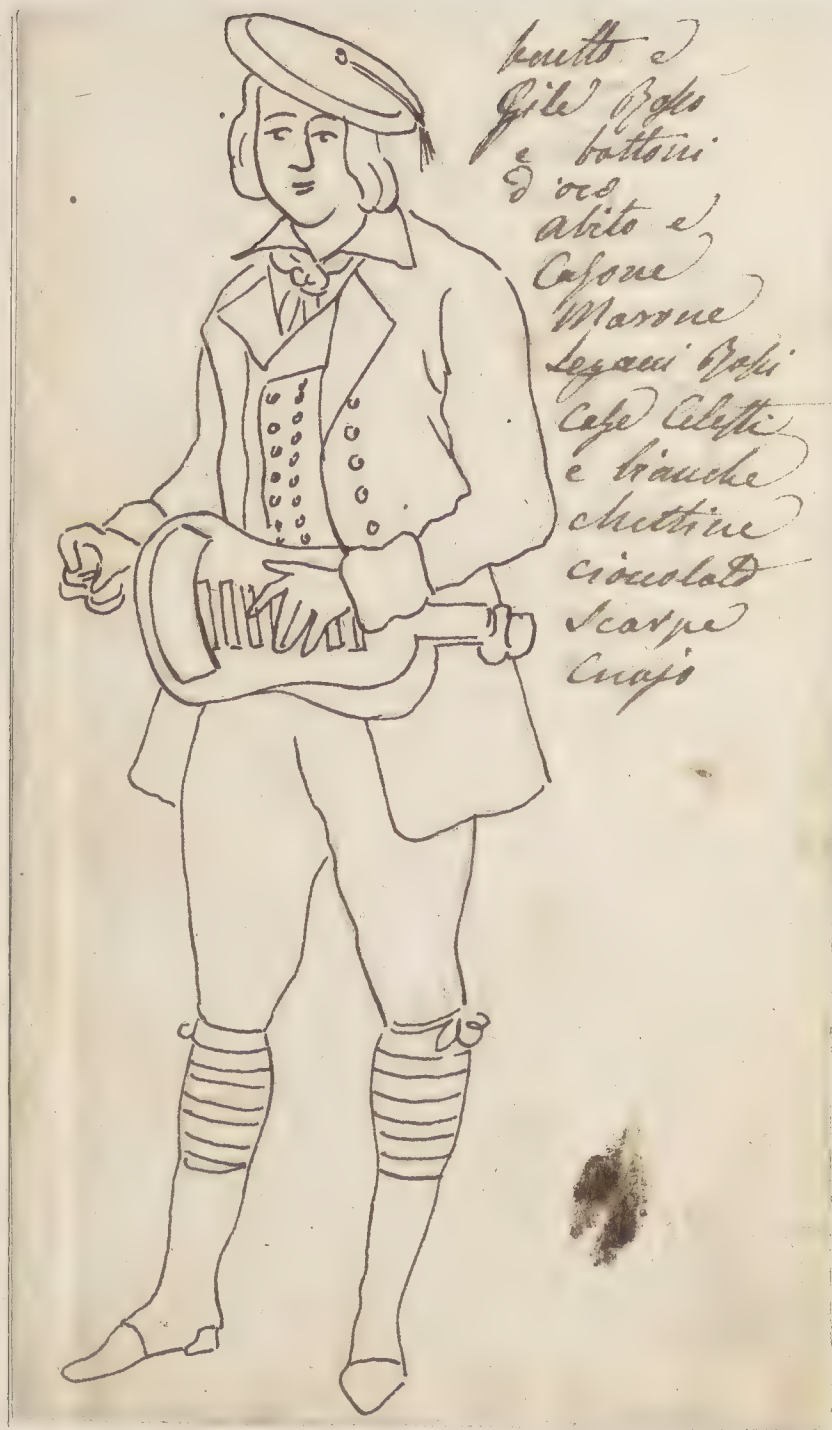 beretto e
Gilè Rosso
e bottoni
d'oro
abito e
Calsone
Marone
Legacci Rossi
Calse Celesti
e bianche
chettine
cioccolato
Scarpe
Cuojo